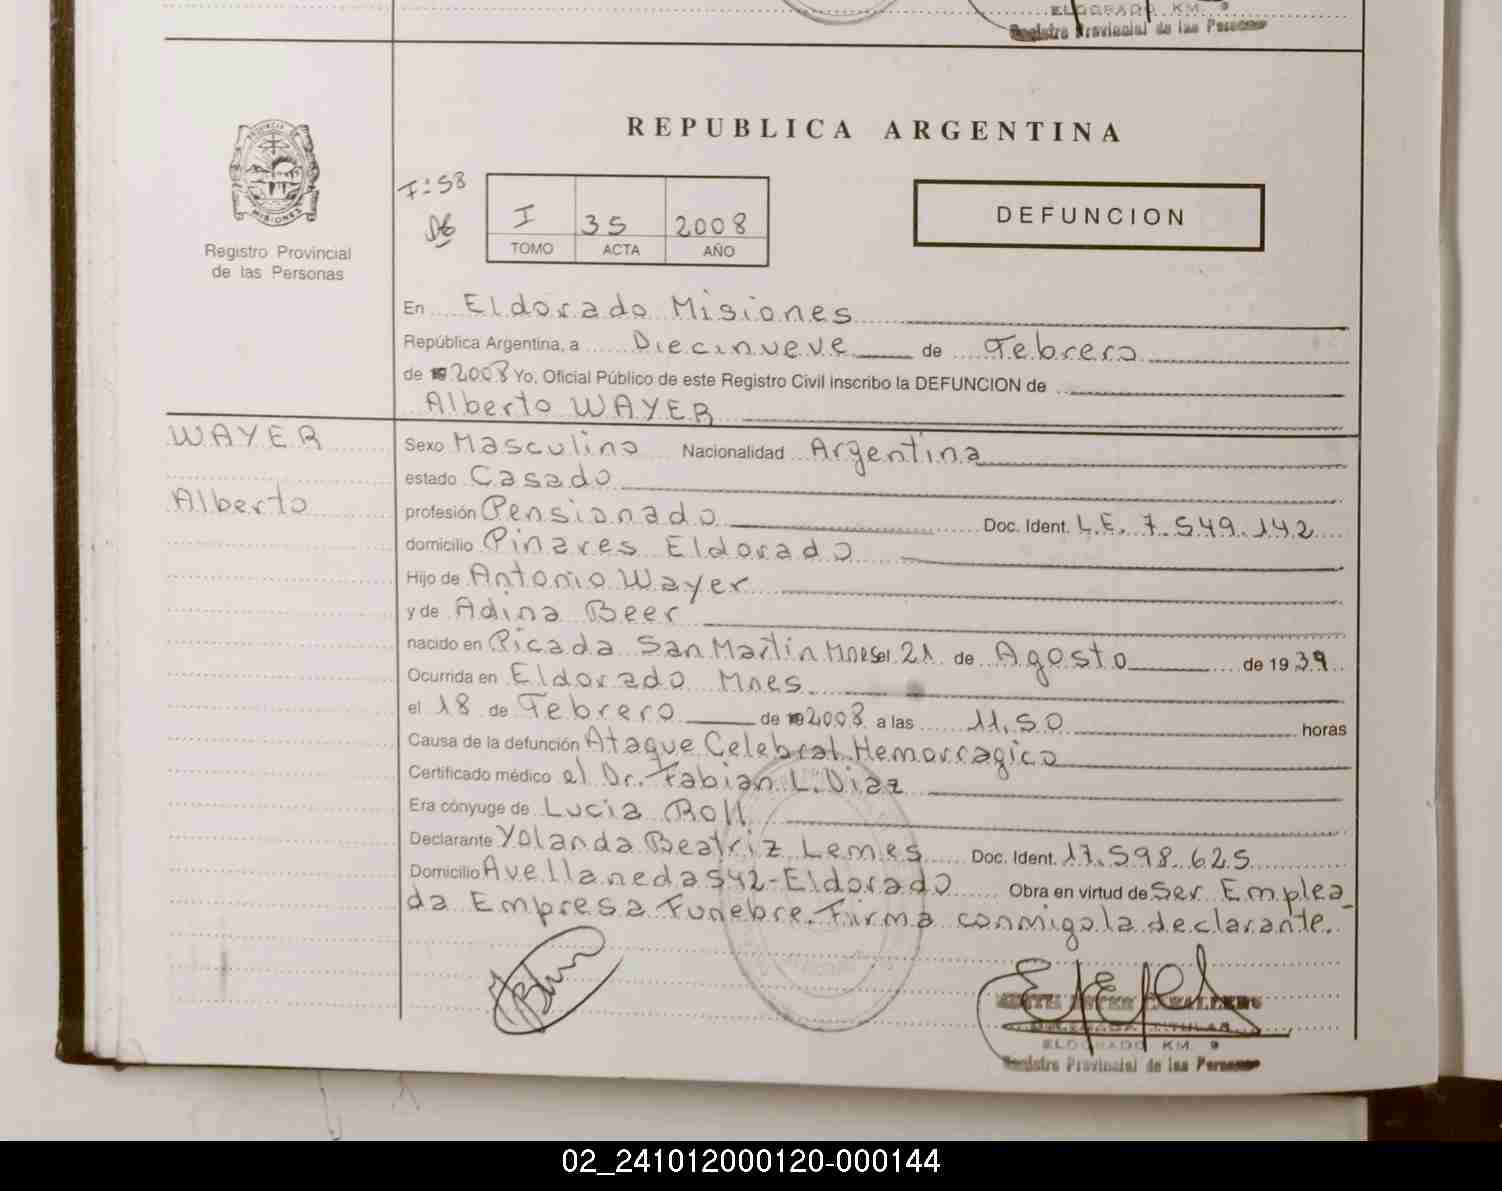 ELDORADO KM. 9
Registro Provincial de las Personas
PROVINCIA DE
MISIONES
Registro Provincial
de las Personas
REPUBLICA ARGENTINA
F: 58
I 35 2008
TOMO ACTA AÑO
DEFUNCION
En Eldorado Misiones
República Argentina, a Diecinueve de Febrero
de 19 2008 Yo, Oficial Público de este Registro Civil inscribo la DEFUNCION de
Alberto WAYER
WAYER
Alberto
Sexo Masculino Nacionalidad Argentina
estado Casado
profesión Pensionado Doc. Ident. L.E. 7.549.142
domicilio Pinares Eldorado
Hijo de Antonio Wayer
y de Adina Beer
nacido en Picada San Martín Mnes el 21 de Agosto de 19 39
Ocurrida en Eldorado Mnes
el 18 de Febrero de 19 2008 a las 11,50 horas
Causa de la defunción Ataque Celebral Hemorragico
Certificado médico el Dr. Fabian L. Diaz
Era cónyuge de Lucia Roll
Declarante Yolanda Beatriz Lemes Doc. Ident. 17.598.625
Domicilio Avellaneda 542-Eldorado Obra en virtud de Ser Emplea_
da Empresa Funebre. Firma conmigo la declarante.
DELEGADA TITULAR
ELDORADO KM. 9
Registro Provincial de las Personas
02_241012000120-000144